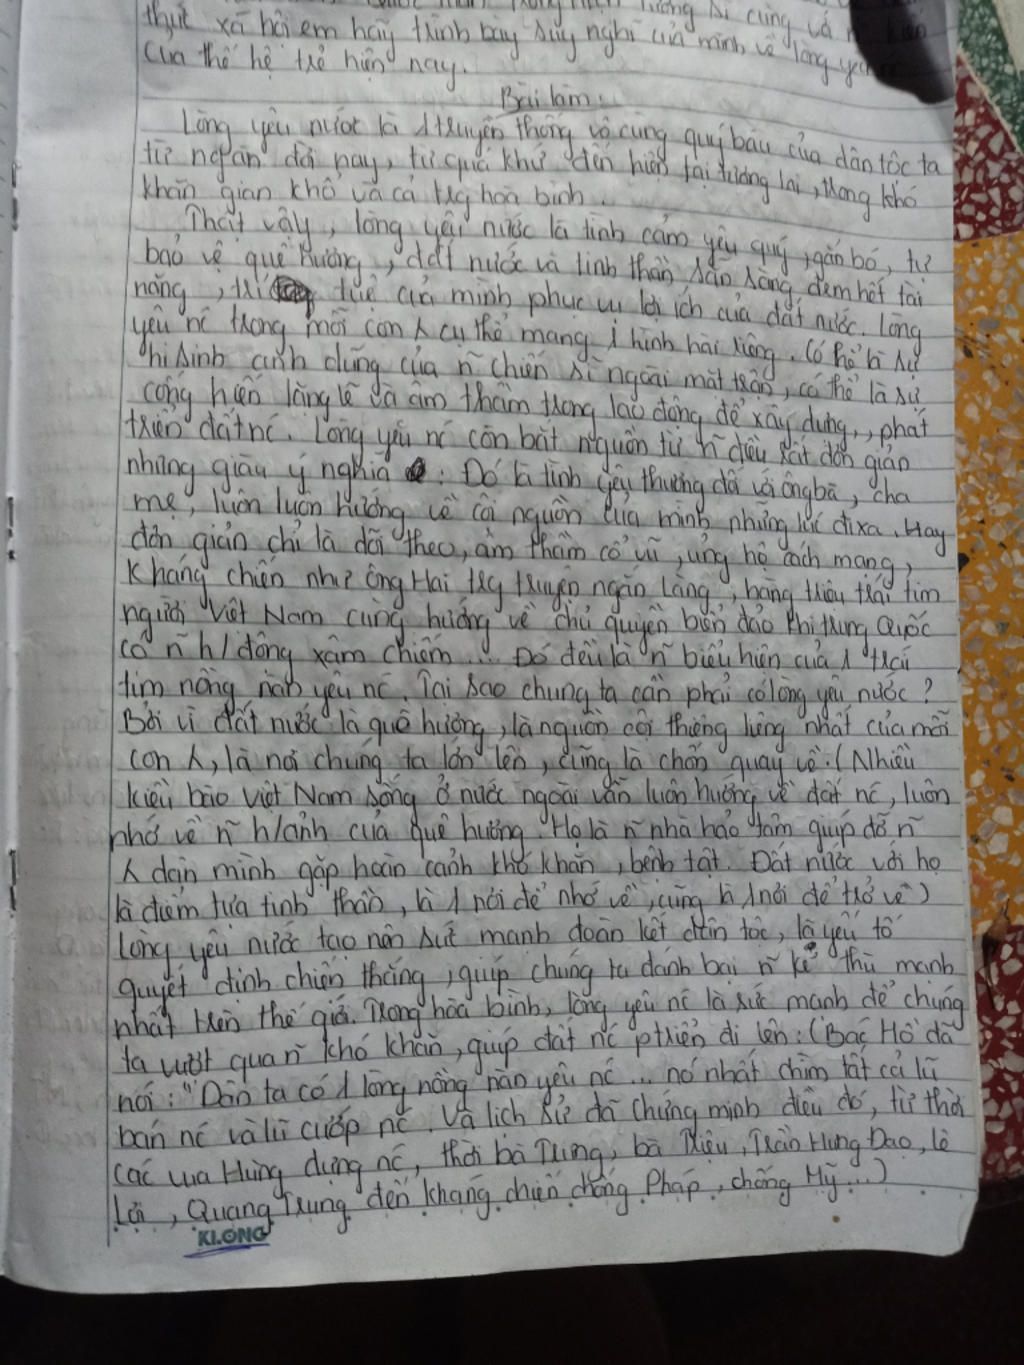 tướng sĩ cùng và
thực xã hội em hãy trình bày suy nghĩ của mình về lòng yêu
của thế hệ trẻ hiện nay.
Bài làm:
Lòng yêu nước là 1 truyền thống vô cùng quý báu của dân tộc ta
từ ngàn đời nay, từ quá khứ đến hiện tại tương lai, trong khó
khăn gian khổ và cả trg hoà bình.
Thật vậy, lòng yêu nước là tình cảm yêu quý, gắn bó, tự
bảo vệ quê hương, đất nước và tinh thần sẵn sàng đem hết tài
năng, trí tuệ của mình phục vụ lợi ích của đất nước. Lòng
yêu nc trong mỗi con λ cụ thể mang 1 hình hài riêng. Có thể là sự
hi sinh anh dũng của n~ chiến sĩ ngoài mặt trận, có thể là sự
cống hiến lặng lẽ và âm thầm trong lao động để xây dựng, phát
triển đất nc. Lòng yêu nc còn bắt nguồn từ n~ điều rất đơn giản
nhưng giàu ý nghĩa: Đó là tình yêu thương đối với ông bà, cha
mẹ, luôn luôn hướng về cội nguồn của mình những lúc đi xa. Hay
đơn giản chỉ là dõi theo, âm thầm cổ vũ, ủng hộ cách mạng,
kháng chiến như ông Hai trg truyện ngắn Làng, hàng triệu trái tim
người Việt Nam cùng hướng về chủ quyền biển đảo khi Trung Quốc
có n~ h/động xâm chiếm... Đó đều là n~ biểu hiện của 1 trái
tim nồng nàn yêu nc. Tại sao chúng ta cần phải có lòng yêu nước?
Bởi vì đất nước là quê hương, là nguồn cội thiêng liêng nhất của mỗi
con λ, là nơi chúng ta lớn lên, cũng là chốn quay về: (Nhiều
kiều bào Việt Nam sống ở nước ngoài vẫn luôn hướng về đất nc, luôn
nhớ về n~ h/ảnh của quê hương. Họ là n~ nhà hảo tâm giúp đỡ n~
λ dân mình gặp hoàn cảnh khó khăn, bệnh tật. Đất nước với họ
là điểm tựa tinh thần, là 1 nơi để nhớ về, cũng là 1 nơi để trở về)
Lòng yêu nước tạo nên sức mạnh đoàn kết dân tộc, là yếu tố
quyết định chiến thắng, giúp chúng ta đánh bại n~ kẻ thù mạnh
nhất trên thế giới. Trong hòa bình, lòng yêu nc là sức mạnh để chúng
ta vượt qua n~ khó khăn, giúp đất nc ptriển đi lên: (Bác Hồ đã
nói: "Dân ta có 1 lòng nồng nàn yêu nc ... nó nhấn chìm tất cả lũ
bán nc và lũ cướp nc. Và lịch sử đã chứng minh điều đó, từ thời
các vua Hùng dựng nc, thời bà Trưng, bà Triệu, Trần Hưng Đạo, Lê
Lợi, Quang Trung đến kháng chiến chống Pháp, chống Mỹ...)
KLONG